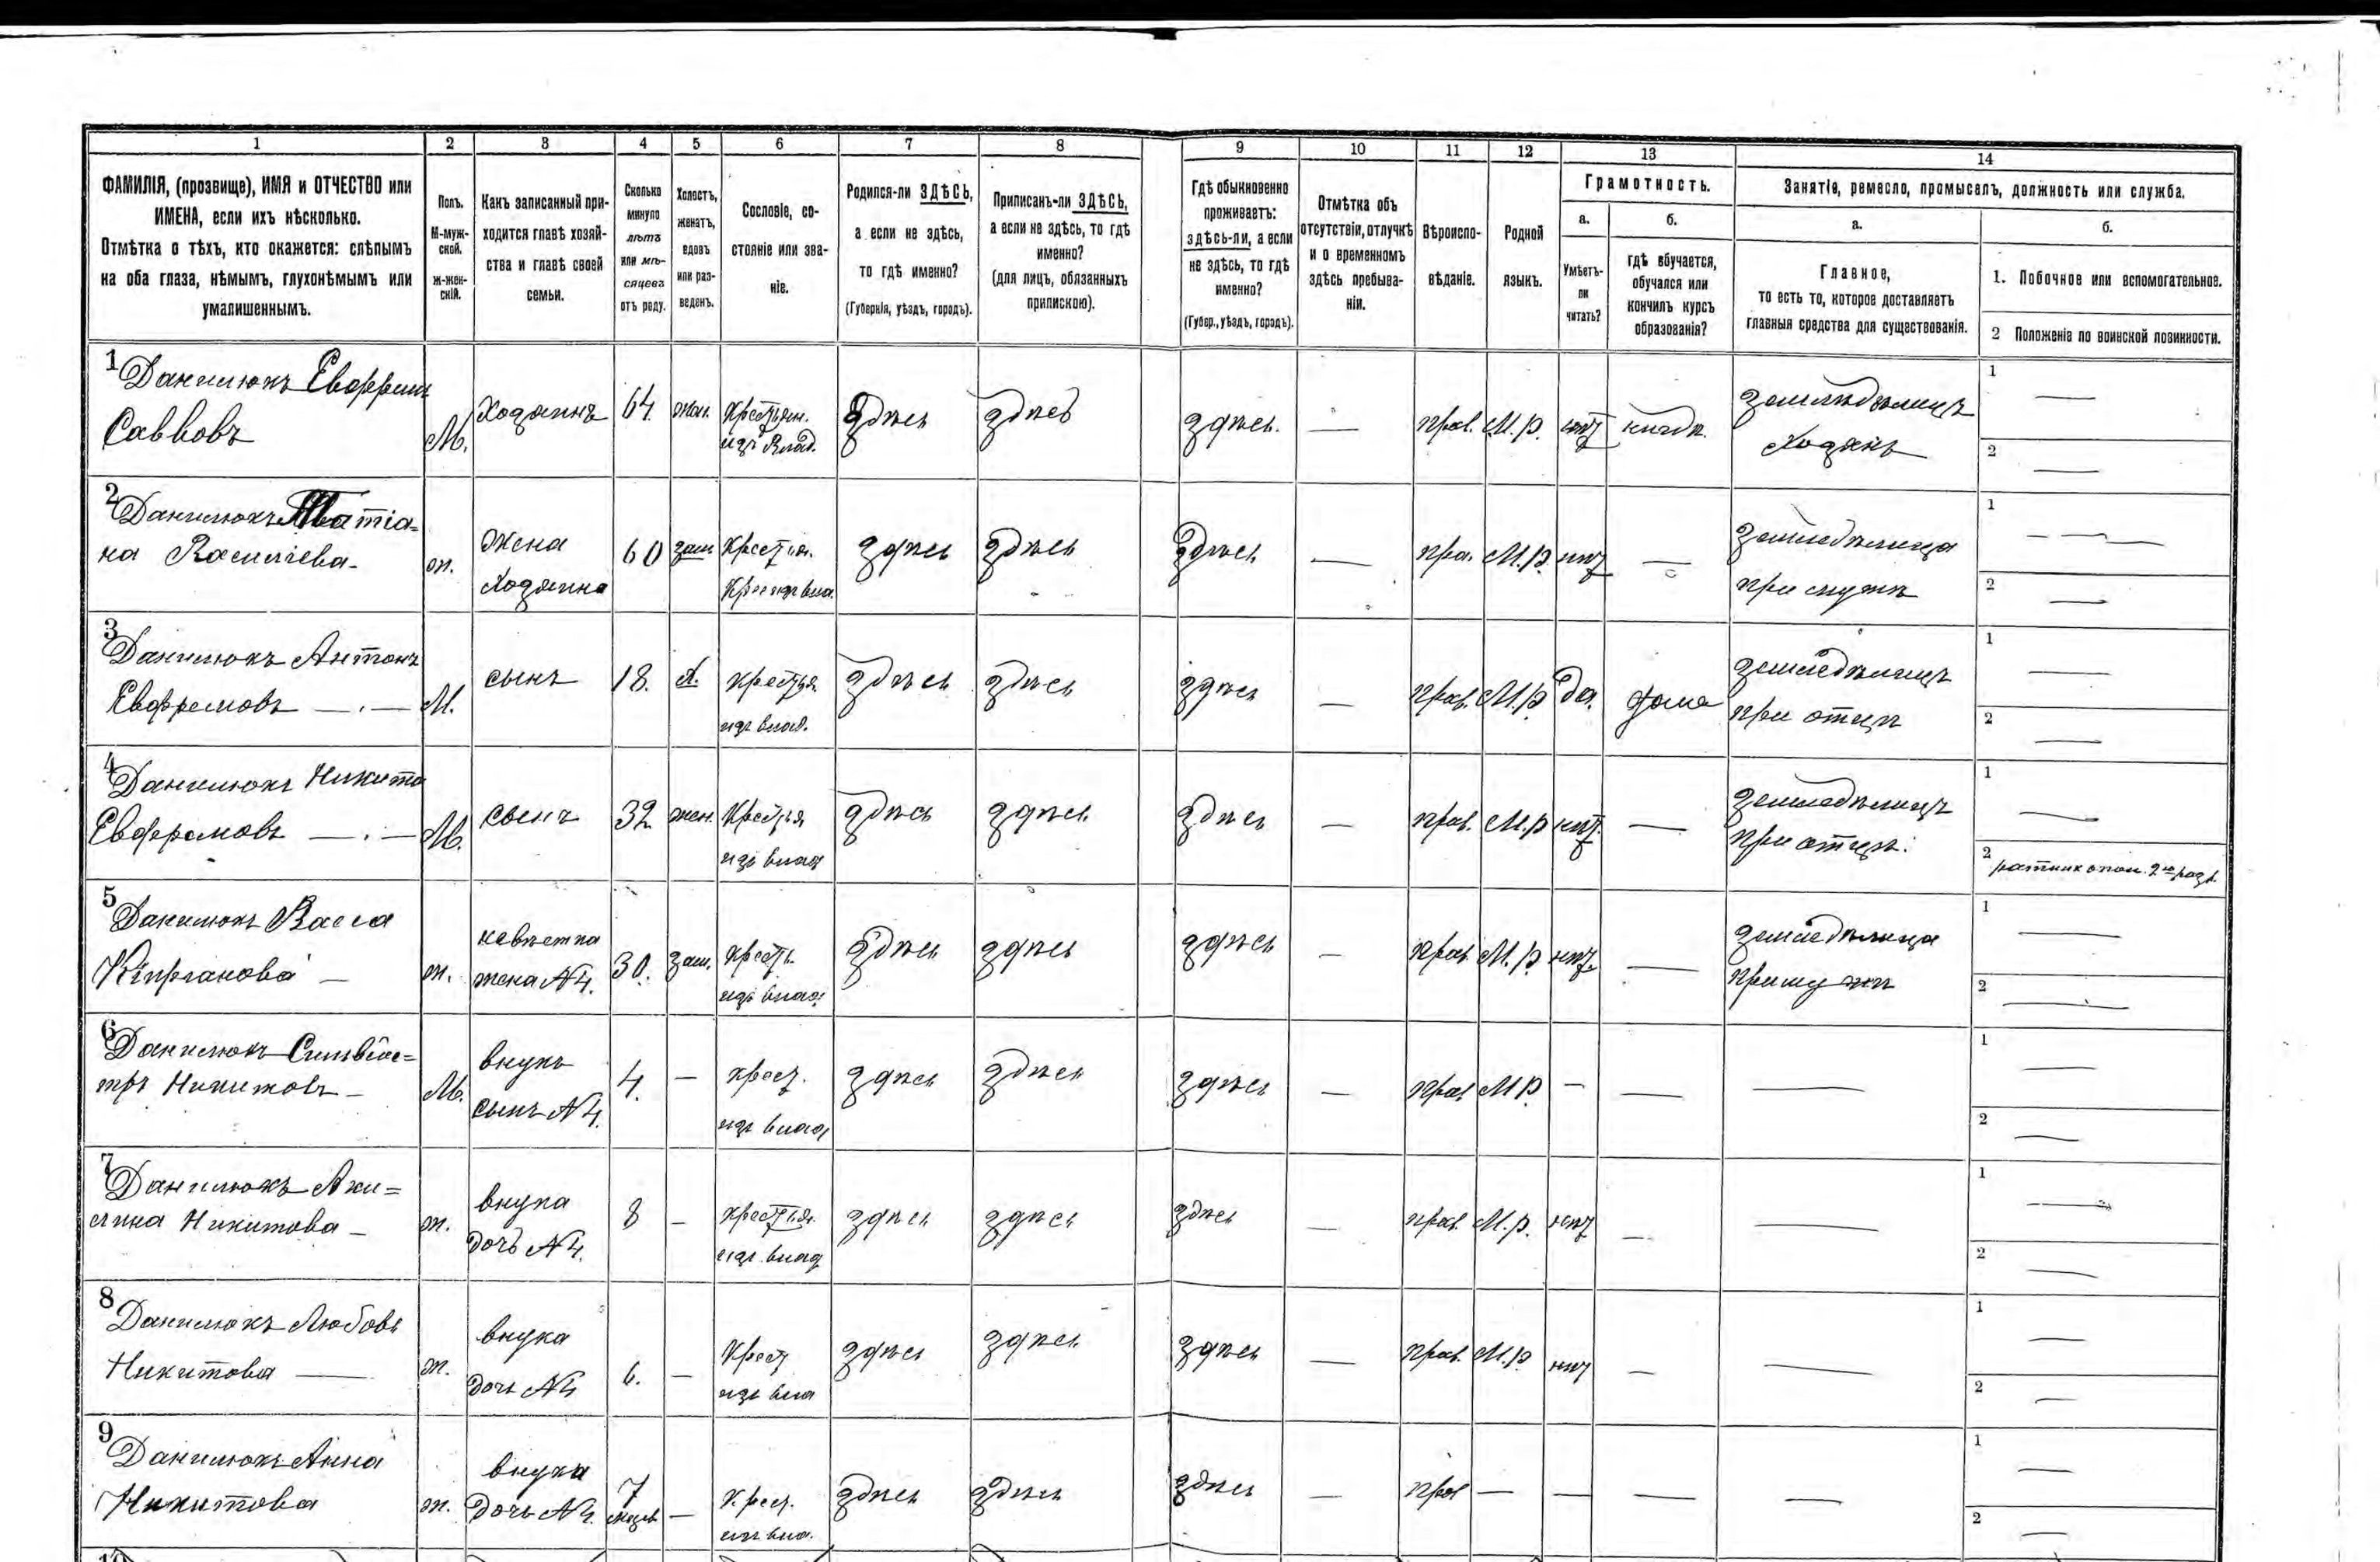 1 2 3 4 5 6 7 8 9 10 11 12 13 14
ФАМИЛІЯ, (прозвище), ИМЯ и ОТЧЕСТВО или
ИМЕНА, если ихъ нѣсколько.
Отмѣтка о тѣхъ, кто окажется: слѣпымъ
на оба глаза, нѣмымъ, глухонѣмымъ или
умалишеннымъ.
Полъ.
М-муж-
ской.
ж-жен-
скій.
Какъ записанный при-
ходится главѣ хозяй-
ства и главѣ своей
семьи.
Сколько
минуло
лѣтъ
или мѣ-
сяцевъ
отъ роду.
Холостъ,
женатъ,
вдовъ
или раз-
веденъ.
Сословіе, со-
стояніе или зва-
ніе.
Родился-ли ЗДѢСЬ,
а если не здѣсь,
то гдѣ именно?
(Губернія, уѣздъ, городъ).
Приписанъ-ли ЗДѢСЬ,
а если не здѣсь, то гдѣ
именно?
(для лицъ, обязанныхъ
припискою).
Гдѣ обыкновенно
проживаетъ:
здѣсь-ли, а если
не здѣсь, то гдѣ
именно?
(Губер., уѣздъ, городъ).
Отмѣтка объ
отсутствіи, отлучкѣ
и о временномъ
здѣсь пребыва-
ніи.
Вѣроиспо-
вѣданіе.
Родной
языкъ.
Грамотность.
а.
Умѣетъ-
ли
читать?
б.
гдѣ обучается,
обучался или
кончилъ курсъ
образованія?
Занятіе, ремесло, промыселъ, должность или служба.
а.
Главное,
то есть то, которое доставляетъ
главныя средства для существованія.
б.
1. Побочное или вспомогательное.
2 Положеніе по воинской повинности.
1 Данилюкъ Евфрем
Саввовъ М. Хозяинъ 64 жен. Крестьян. здѣсь здѣсь здѣсь. — прав. М.р. нѣт земледѣлецъ 1 —
изъ влад. Хозяинъ 2 —
2 Данилюкъ Татіа=
на Василіева- ж. жена 60 зам. Крестья. здѣсь здѣсь здѣсь — пра. М.р. нѣт — земледѣлица 1 —
Хозяина при мужѣ 2 —
3 Данилюкъ Антонъ
Евфремовъ — . — М. сынъ 18. Х. крестья здѣсь здѣсь здѣсь — прав. М.р. да. дома земледѣлецъ 1 —
изъ влад. при отцѣ 2 —
4 Данилюкъ Никита
Евфремовъ — . — М. сынъ 32 жен. Крестья здѣсь здѣсь здѣсь — прав. М.р нѣт. — земледѣлецъ 1 —
изъ влад при отцѣ. 2 ратник опол. 2го разр.
5 Данилюкъ Васса
Кипріанова — ж. невѣстка 30. зам. крест. здѣсь здѣсь здѣсь — прав. М.р. нѣт. — земледѣлица 1 —
жена №4. изъ влад. при мужѣ 2 —
6 Данилюкъ Сильвес=
тръ Никитовъ — М. внукъ 4. — крест. здѣсь здѣсь здѣсь — прав. М.р. — — — 1 —
сынъ №4. изъ влад 2 —
7 Данилюкъ Аки=
лина Никитова — ж. внука 8 — крестья. здѣсь здѣсь здѣсь — прав. М.р. нѣт — — 1 —
дочь №4. изъ влад 2 —
8 Данилюкъ Любовь
Никитова — ж. внука 6. — Крест здѣсь здѣсь здѣсь — прав. М.р. нѣт — — 1 —
дочь №4 изъ вла 2 —
9 Данилюкъ Анна
Никитова ж. внука 7 — Крест. здѣсь здѣсь здѣсь — прав — — — — 1 —
дочь №4. изъ вла. 2 —